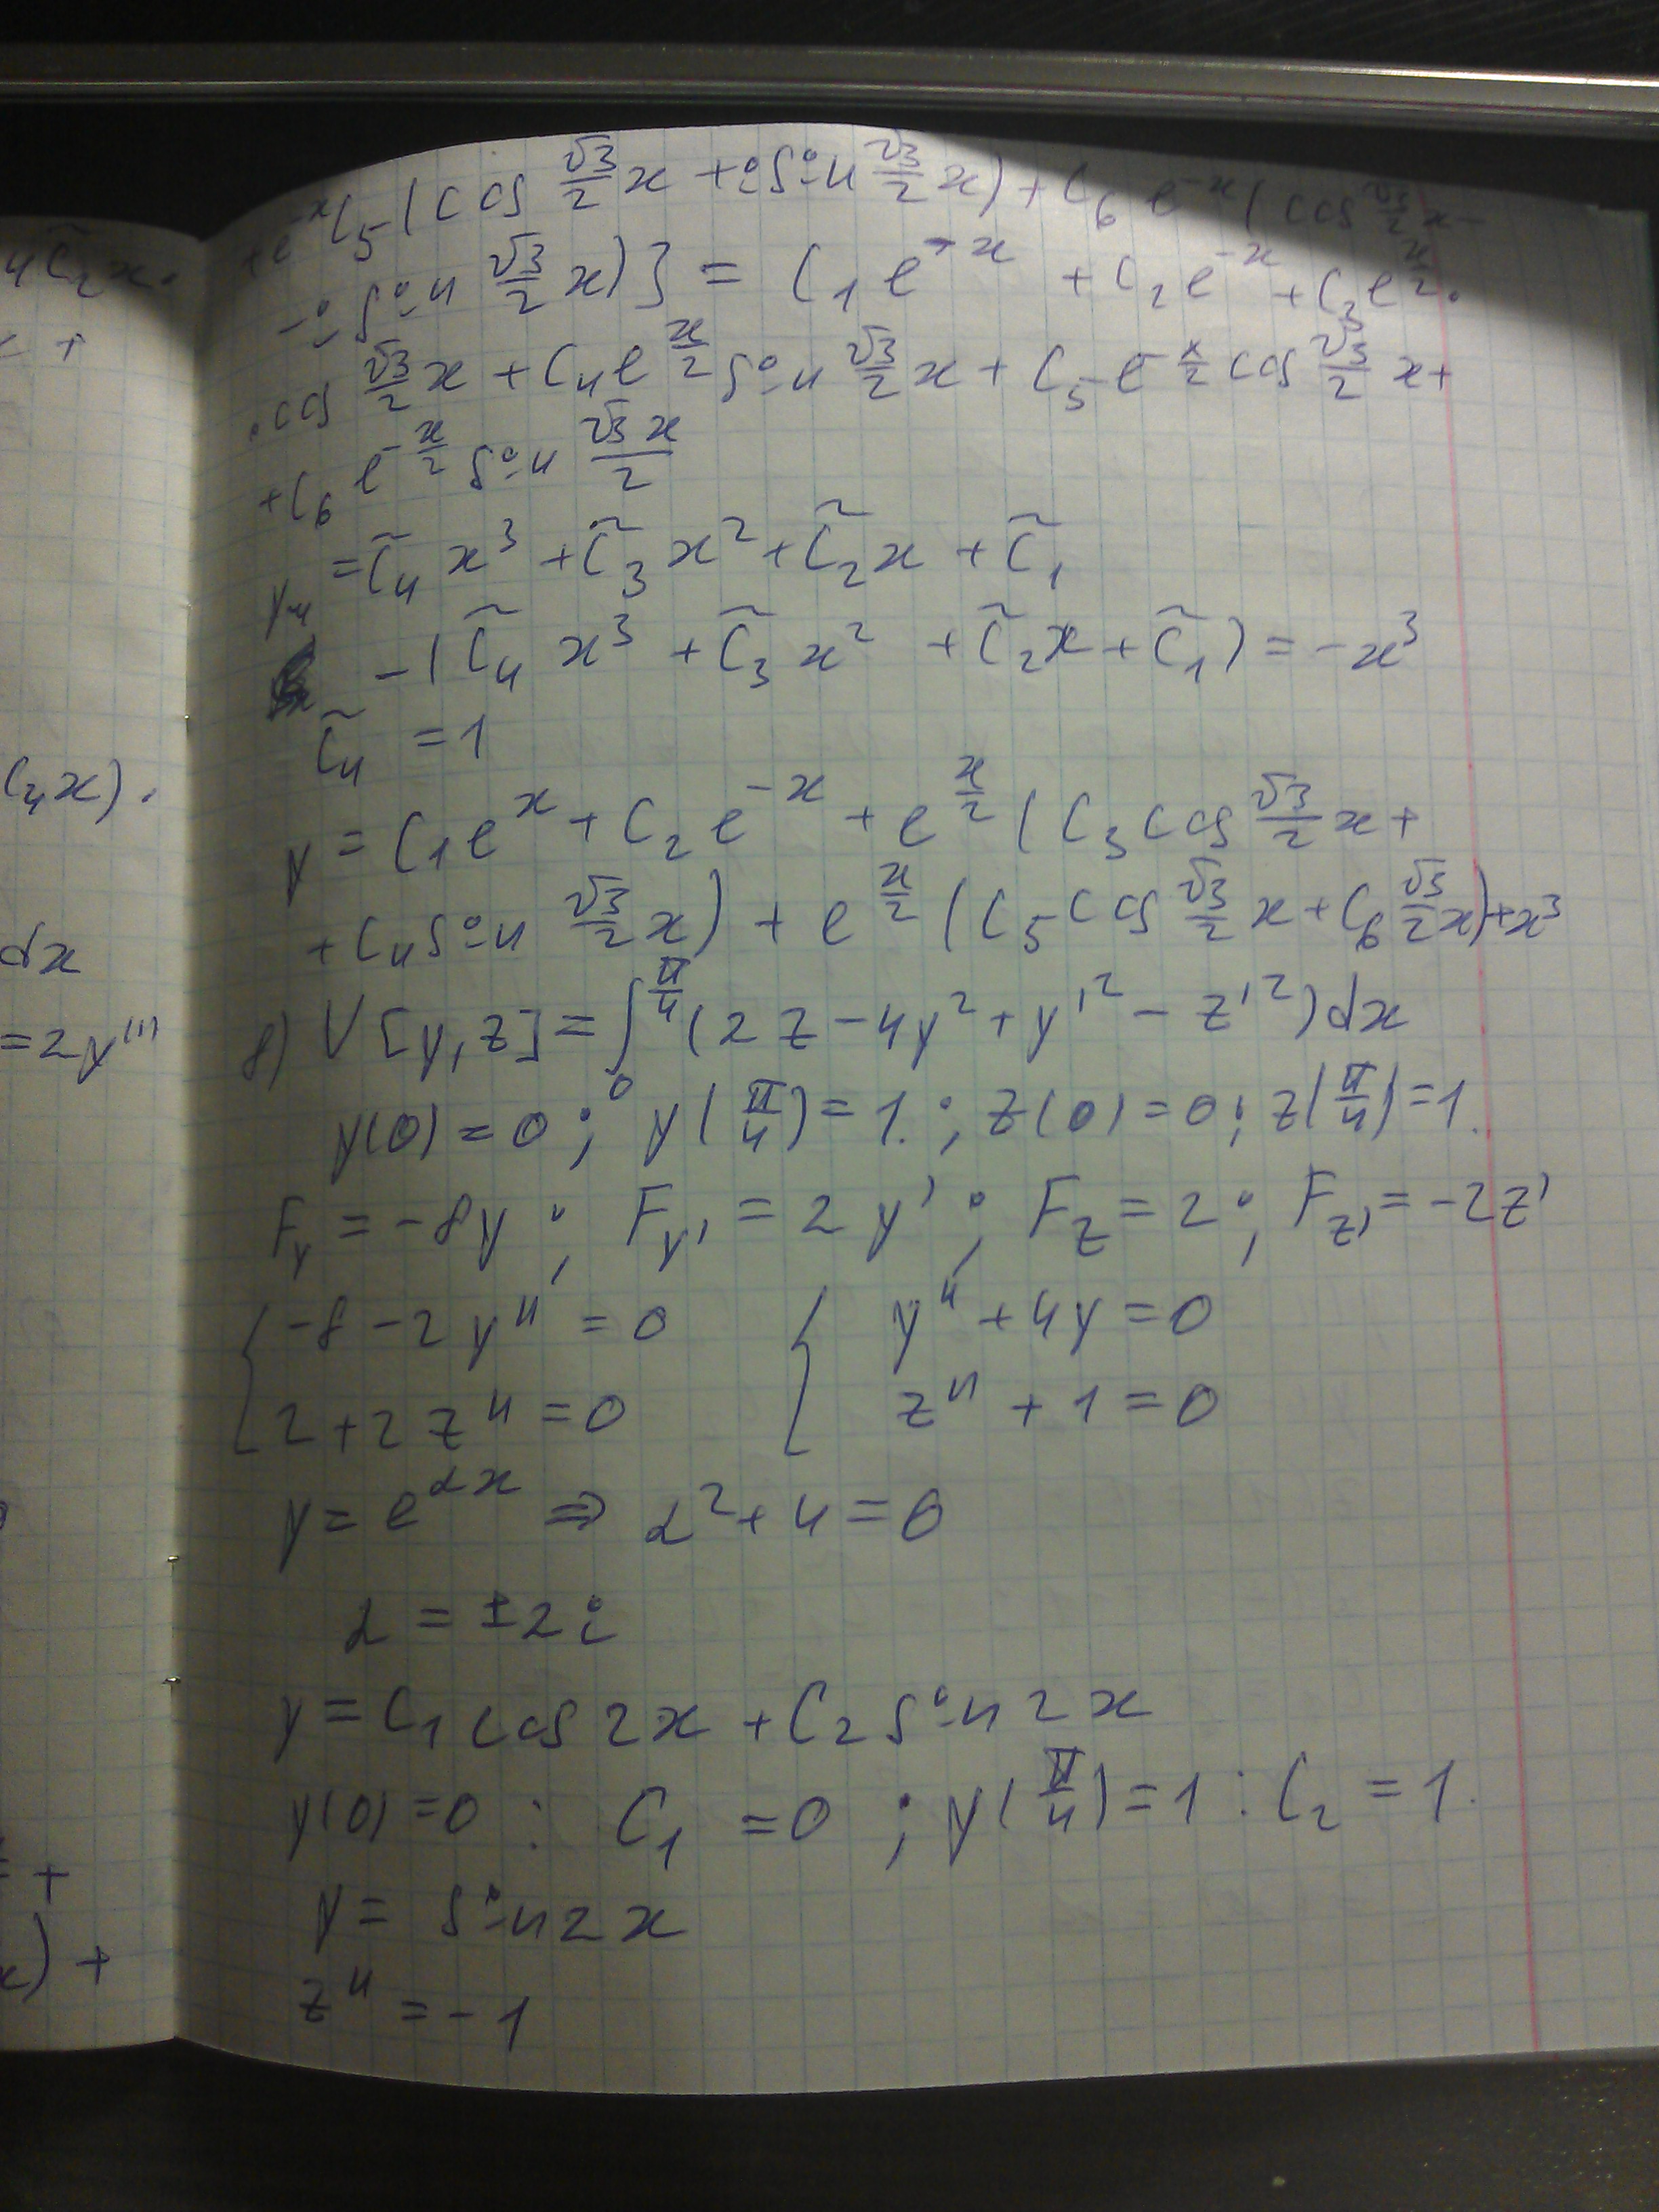 4C̃₂x.
+
C₄x).
dx
=2y'''
+
x) +
+e^{-x}C₅(cos √3/2 x + i sin √3/2 x) + C₆ e^{-x}(cos √3/2 x −
− i sin √3/2 x)} = C₁e^{-x} + C₂e^{-x} + C₃e^{x/2}.
.cos √3/2 x + C₄e^{x/2} sin √3/2 x + C₅e^{-x/2} cos √3/2 x +
+C₆ e^{-x/2} sin √3x/2
yч = C̃₄ x³ + C̃₃ x² + C̃₂x + C̃₁
−(C̃₄ x³ + C̃₃ x² + C̃₂x + C̃₁) = −x³
C̃₄ = 1
y = C₁e^x + C₂e^{-x} + e^{x/2}(C₃cos √3/2 x +
+ C₄ sin √3/2 x) + e^{x/2}(C₅cos √3/2 x + C₆ √3/2 x) + x³
8) V[y,z] = ∫₀^{π/4}(2z − 4y² + y'² − z'²)dx
y(0) = 0; y(π/4) = 1.; z(0) = 0; z(π/4) = 1.
F_y = −8y; F_y' = 2y'; F_z = 2; F_z' = −2z'
{ −8 − 2y'' = 0 { y'' + 4y = 0
2 + 2z'' = 0 z'' + 1 = 0
y = e^{αx} ⇒ α² + 4 = 0
α = ±2i
y = C₁cos2x + C₂sin2x
y(0) = 0 : C₁ = 0; y(π/4) = 1 : C₂ = 1.
y = sin2x
z'' = −1